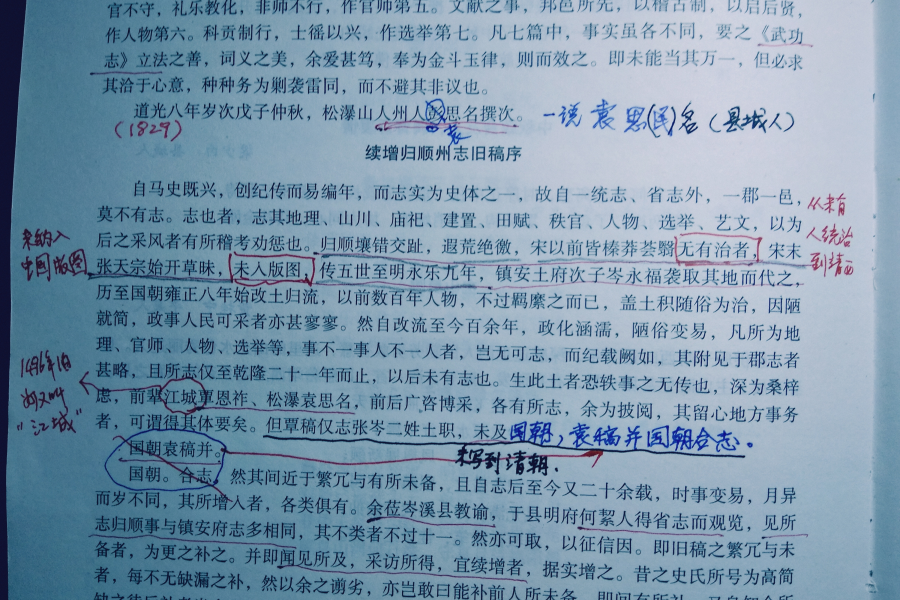 官不守，礼乐教化，非师不行，作官师第五。文献之事，邦邑所先，以稽古制，以启后贤，
作人物第六。科贡制行，士徭以兴，作选举第七。凡七篇中，事实虽各不同，要之《武功
志》立法之善，词义之美，余爱甚笃，奉为金斗玉律，则而效之。即未能当其万一，但必求
其洽于心意，种种务为剿袭雷同，而不避其非议也。
道光八年岁次戊子仲秋，松瀑山人州人 思名撰次。
一说袁思(民)名（县城人）
(1829)
袁
续增归顺州志旧稿序
自马史既兴，创纪传而易编年，而志实为史体之一，故自一统志、省志外，一郡一邑，
莫不有志。志也者，志其地理、山川、庙祀、建置、田赋、秩官、人物、选举、艺文，以为
后之采风者有所稽考劝惩也。归顺壤错交趾，遐荒绝徼，宋以前皆榛莽荟翳无有治者，宋末
张天宗始开草昧，未入版图，传五世至明永乐九年，镇安土府次子岑永福袭取其地而代之，
历至国朝雍正八年始改土归流，以前数百年人物，不过羁縻之而已，盖土积随俗为治，因陋
就简，政事人民可采者亦甚寥寥。然自改流至今百余年，政化涵濡，陋俗变易，凡所为地
理、官师、人物、选举等，事不一事人不一人者，岂无可志，而纪载阙如，其附见于郡志者
甚略，且所志仅至乾隆二十一年而止，以后未有志也。生此土者恐轶事之无传也，深为桑梓
虑，前辈江城覃恩祚、松瀑袁思名，前后广咨博采，各有所志，余为披阅，其留心地方事务
者，可谓得其体要矣。但覃稿仅志张岑二姓土职，未及国朝，袁稿并国朝合志。
国朝袁稿并。
未写到清朝.
国朝。合志。然其间近于繁冗与有所未备，且自志后至今又二十余载，时事变易，月异
而岁不同，其所增人者，各类俱有。余莅岑溪县教谕，于县明府何絜人得省志而观览，见所
志归顺事与镇安府志多相同，其不类者不过十一。然亦可取，以征信因。即旧稿之繁冗与未
备者，为更之补之。并即闻见所及，采访所得，宜续增者，据实增之。昔之史氏所号为高简
者，每不无缺漏之补，然以余之谫劣，亦岂敢曰能补前人所未备，即间有所补，又自知
未纳入
中国版图
从未有
人统治
到靖西
1496年旧
州又叫
“江城”